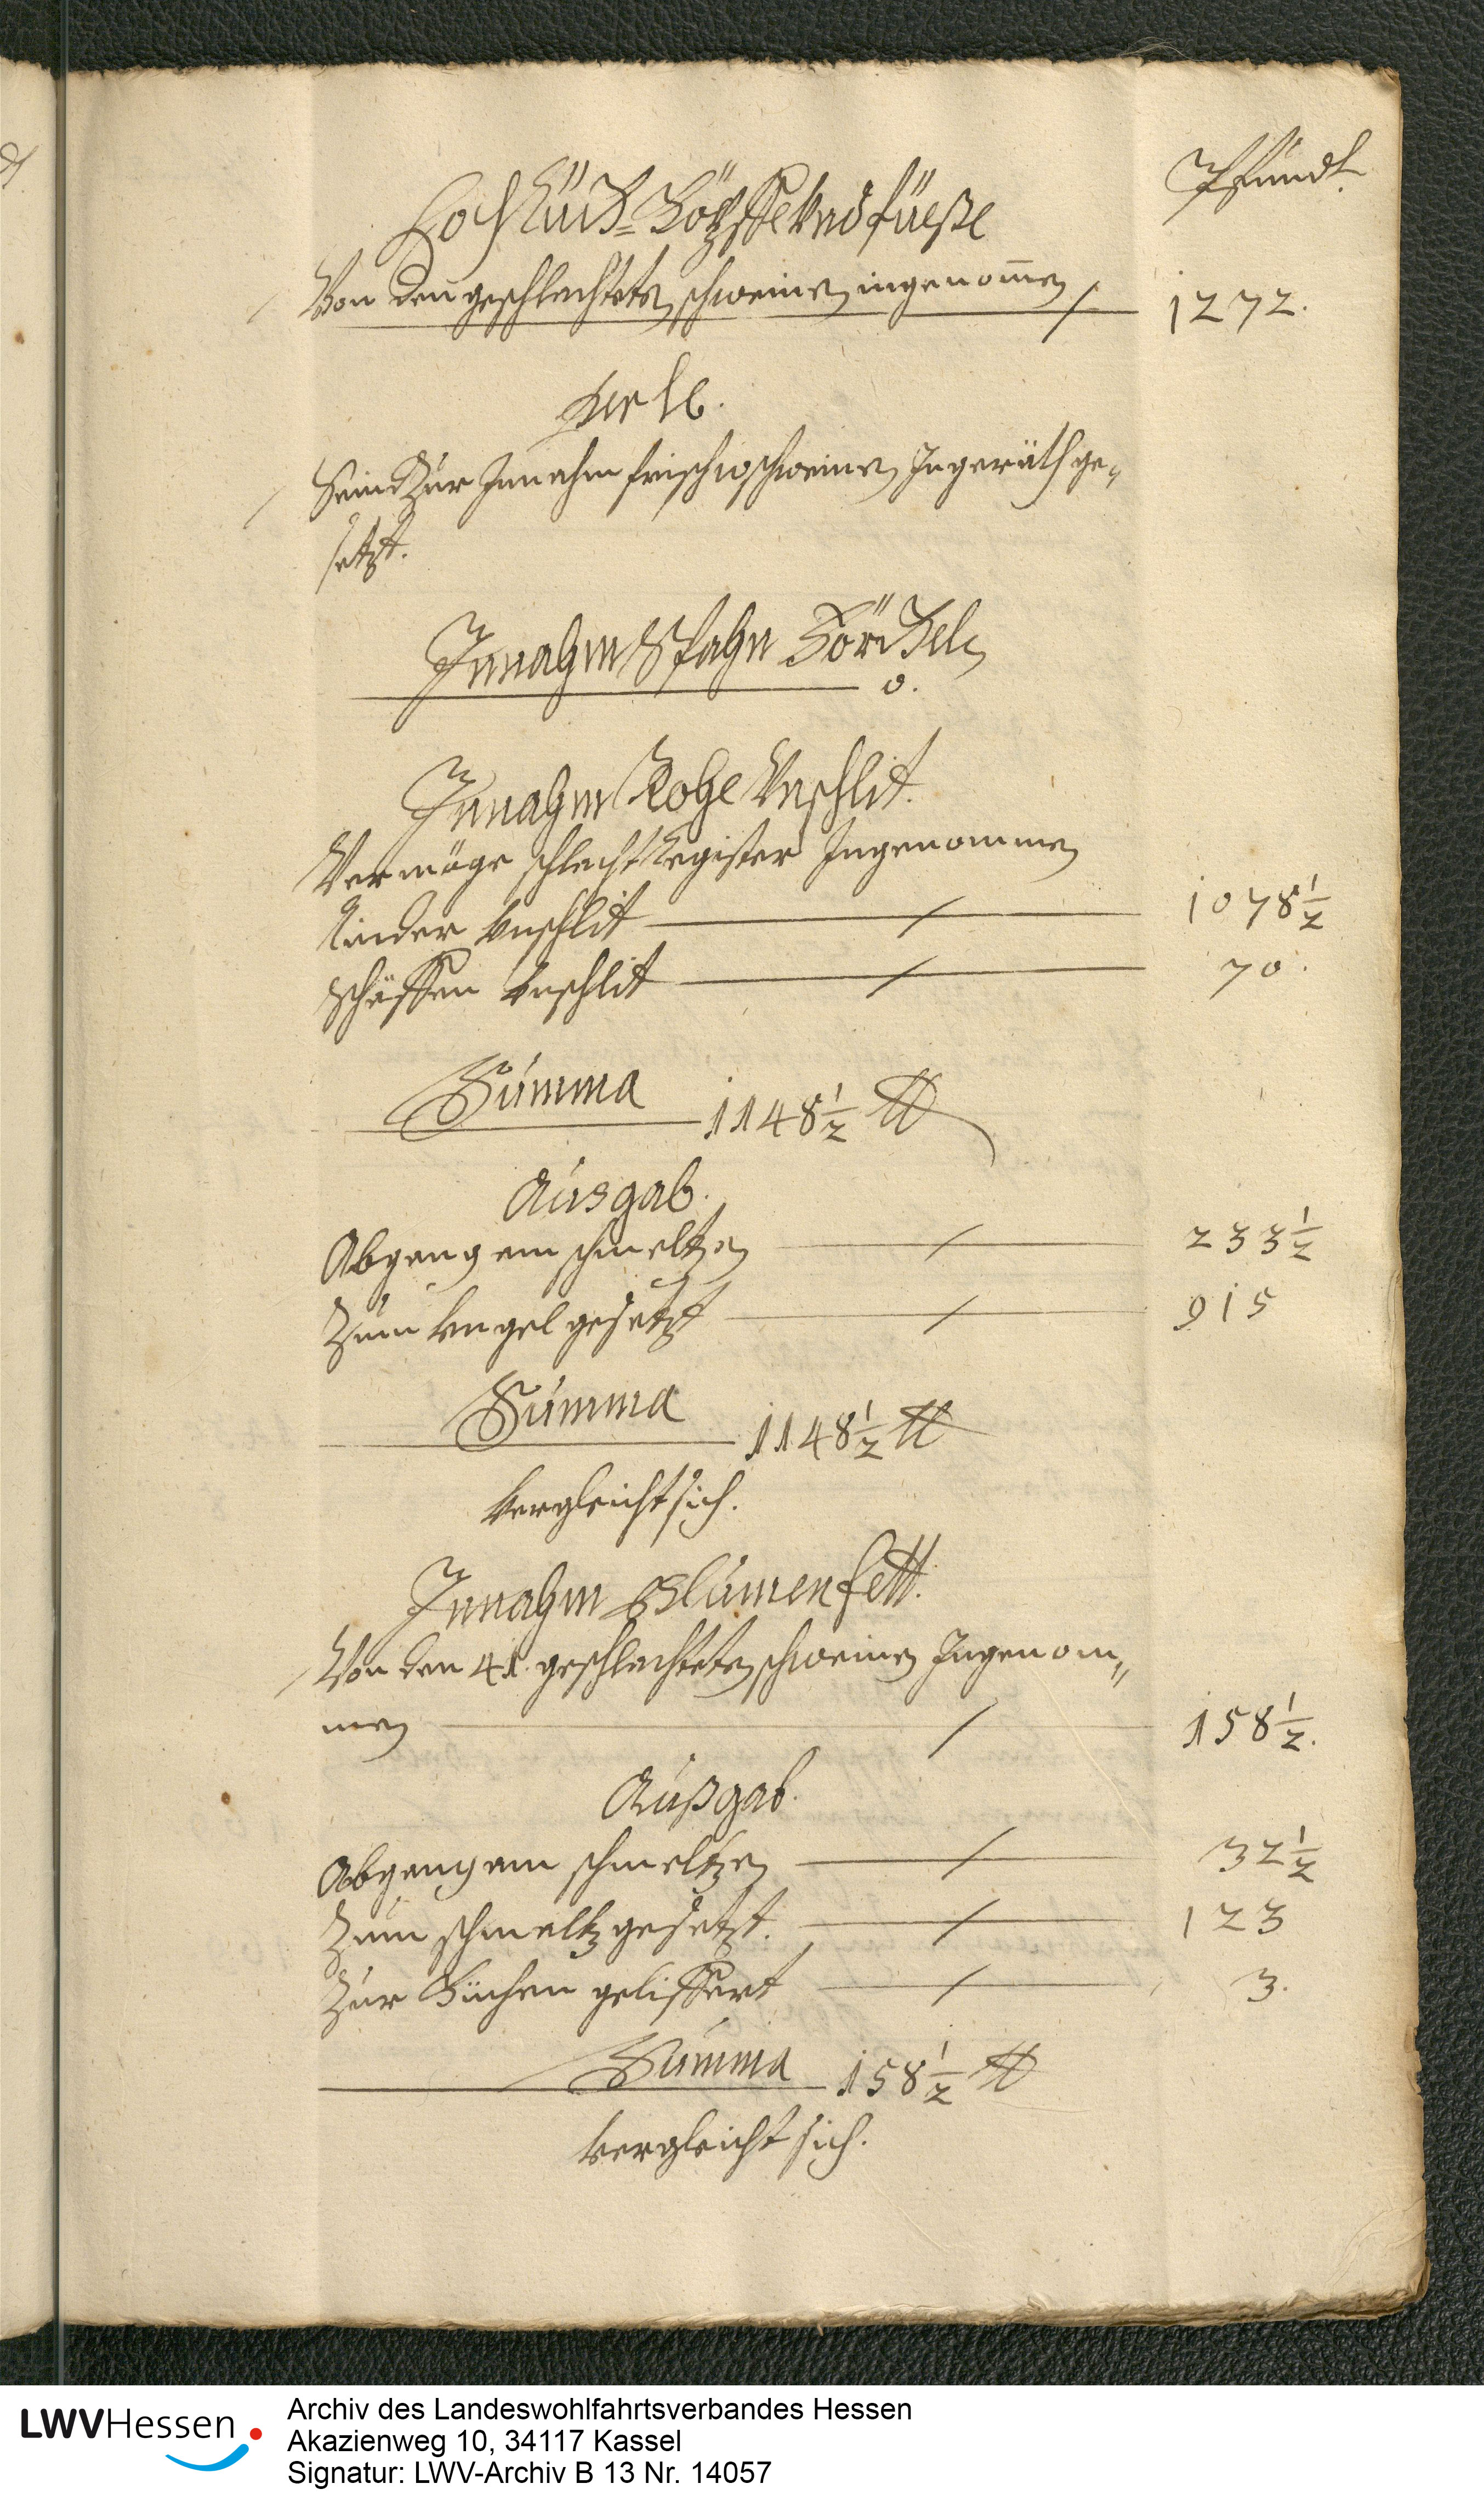 Pfundt
Kochstück Köpffe vnd füeße
Von den geschlachteten schweinen ingenom̄en 1272.
per se.
Seind Zur Innahm frisch schweinen Ingeräth ge-
setzt.
Innahm Spahn Förckeln
0.
Innahm Rohe Vnschlit.
Vermöge schlacht Register Ingenommen
Rinder vnschlit 1078 1/2
Schaffen vnschlit 70.
Summa 1148 1/2 ℔
Ausgab.
Abgang am schmeltzen 233 1/2
Zum kugel gesetzt 915
Summa 1148 1/2 ℔
vergleicht sich.
Innahm Blumen fett.
Von den 41. geschlachteten schweinen Ingenom-
men 158 1/2.
Außgab.
Abgang am schmeltzen 32 1/2
Zum schmaltz gesetzt. 123
Zur Kuchen geliffert 3.
Summa 158 1/2 ℔
vergleicht sich.
LWVHessen
Archiv des Landeswohlfahrtsverbandes Hessen
Akazienweg 10, 34117 Kassel
Signatur: LWV-Archiv B 13 Nr. 14057